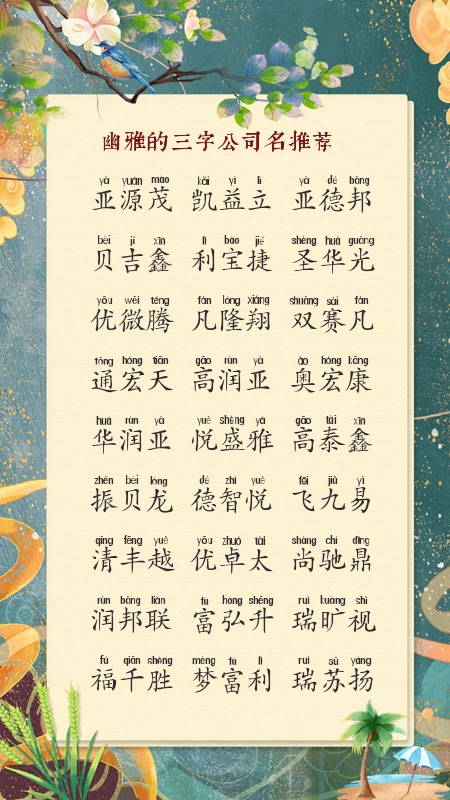 幽雅的三字公司名推荐
yà yuán mào kǎi yì lì yà dé bāng
亚源茂 凯益立 亚德邦
bèi jí xīn lì bǎo jié shèng huá guāng
贝吉鑫 利宝捷 圣华光
yōu wēi téng fán lóng xiáng shuāng sài fán
优微腾 凡隆翔 双赛凡
tōng hóng tiān gāo rùn yà ào hóng kāng
通宏天 高润亚 奥宏康
huá rùn yà yuè shèng yǎ gāo tài xīn
华润亚 悦盛雅 高泰鑫
zhèn bèi lóng dé zhì yuè fēi jiǔ yì
振贝龙 德智悦 飞九易
qīng fēng yuè yōu zhuó tài shàng chí dǐng
清丰越 优卓太 尚驰鼎
rùn bāng lián fù hóng shēng ruì kuàng shì
润邦联 富弘升 瑞旷视
fú qiān shèng mèng fù lì ruì sū yáng
福千胜 梦富利 瑞苏扬